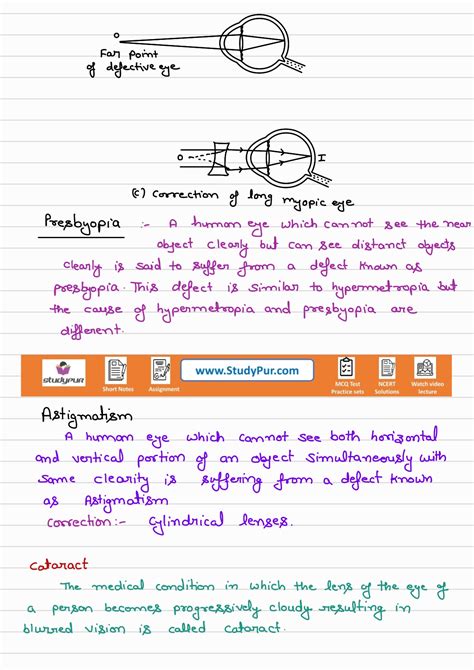 O
Far point
of defective eye
O
I
(c) Correction of long myopic eye
Presbyopia :- A human eye which cannot see the near
object clearly but can see distanct objects
clearly is said to suffer from a defect known as
presbyopia. This defect is similar to hypermetropia but
the cause of hypermetropia and presbyopia are
different.
studypur
Short Notes
Assignment
www.StudyPur.com
MCQ Test
Practice sets
NCERT
Solutions
Watch video
lecture
Astigmatism
A human eye which cannot see both horizontal
and vertical portion of an object simultaneously with
same clearity is suffering from a defect known
as Astigmatism
Correction:- Cylindrical lenses.
Cataract
The medical condition in which the lens of the eye of
a person becomes progressively cloudy resulting in
blurred vision is called cataract.